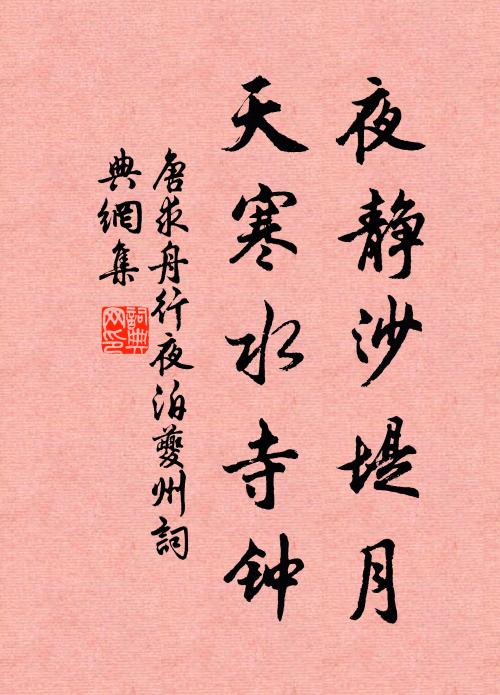 夜静沙堤月
天寒水寺钟
唐求舟行夜泊夔州詞
典網集
詞典網印